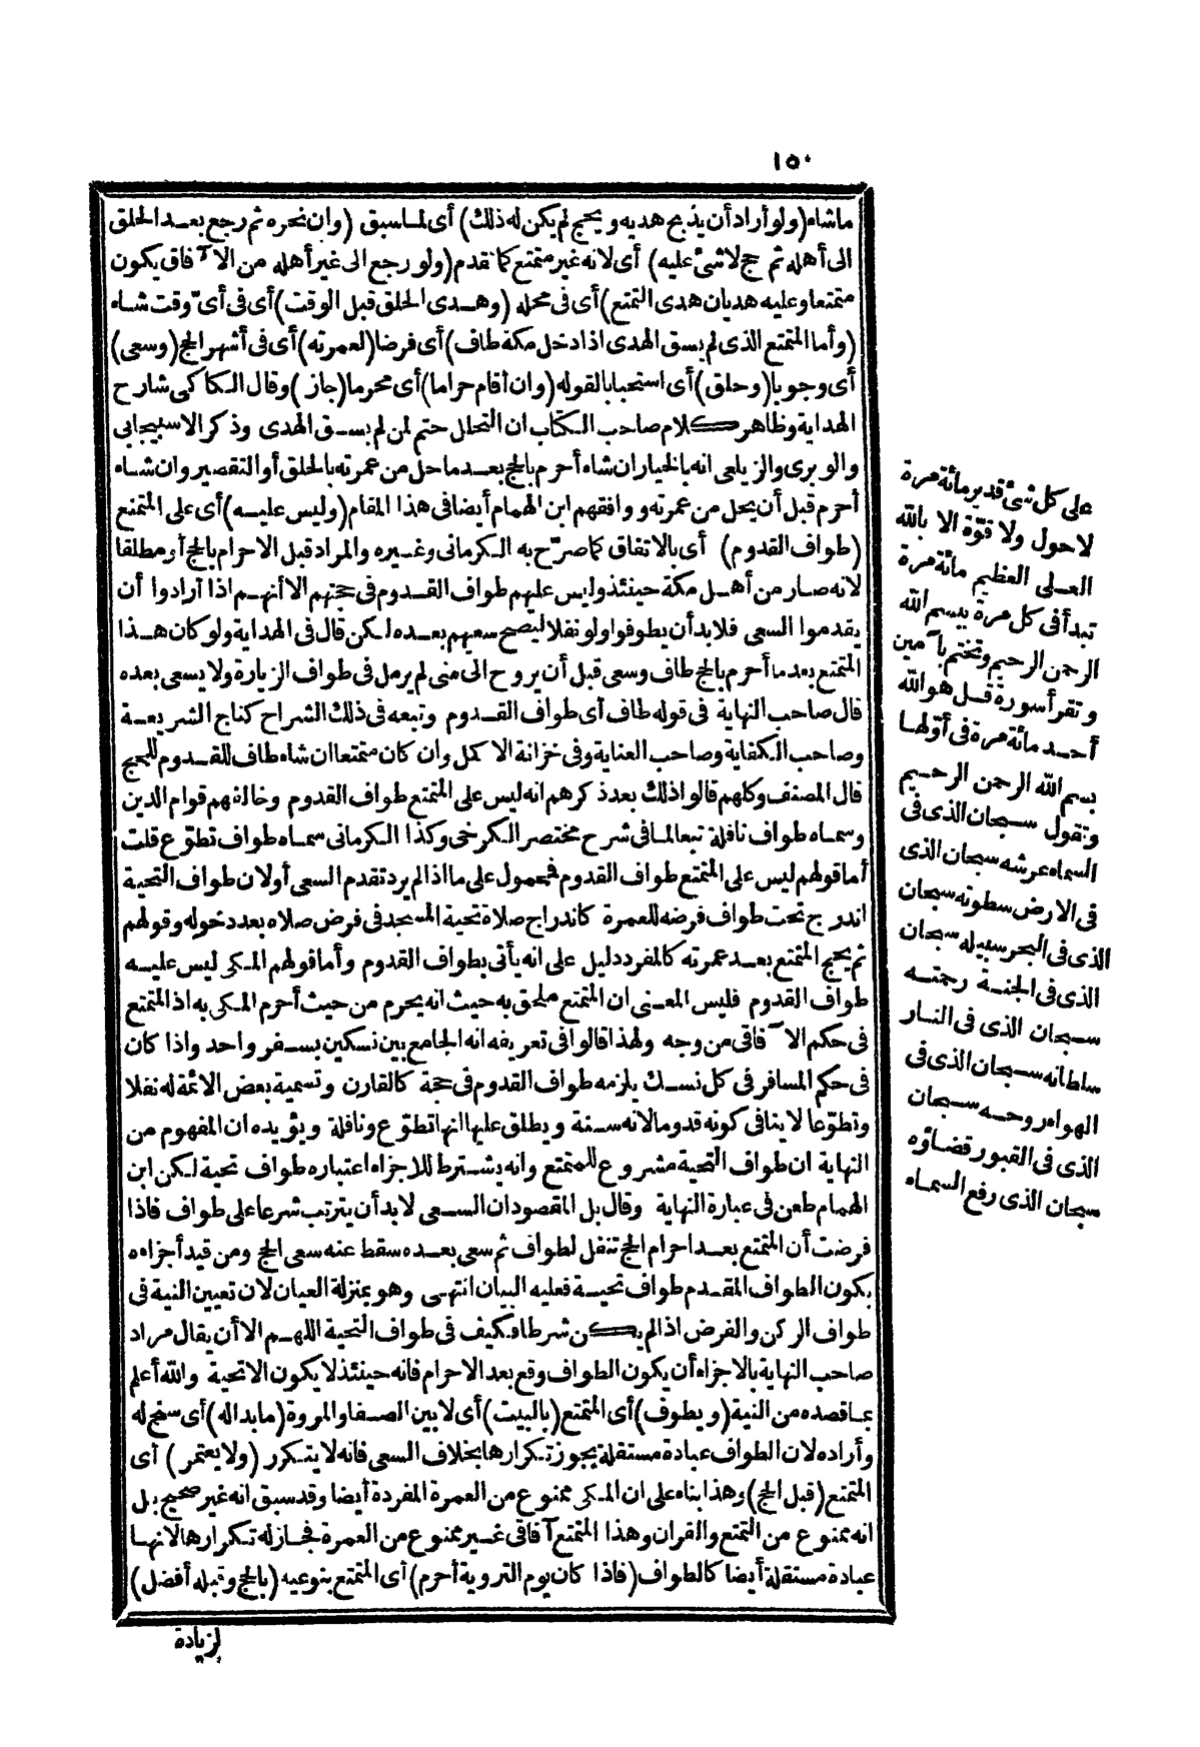 ١٥٠
ماشاء (ولو أراد أن يذبح هديه ويحج لم يكن له ذلك) أى لما سبق (وان نحره ثم رجع بعد الحلق
الى أهله ثم حج لا شئ عليه) أى لانه غير متمتع كما تقدم (ولو رجع الى غير أهله من الآفاق يكون
متمتعا وعليه هديان هدى التمتع) أى فى محله (وهدى الحلق قبل الوقت) أى فى أىّ وقت شاء
(وأما المتمتع الذى لم يسق الهدى اذا دخل مكة طاف) أى فرضا (لعمرته) أى فى أشهر الحج (وسعى)
أى وجوبا (وحلق) أى استحبابا لقوله (وان أقام حراما) أى محرما (جاز) وقال الكاكى شارح
الهداية وظاهر كلام صاحب الكتاب ان التحلل حتم لمن لم يسق الهدى وذكر الاسبيجابى
والوبرى والزيلعى انه بالخيار ان شاء أحرم بالحج بعد ما حل من عمرته بالحلق أو التقصير وان شاء
أحرم قبل أن يحل من عمرته ووافقهم ابن الهمام أيضا فى هذا المقام (وليس عليه) أى على المتمتع
(طواف القدوم) أى بالاتفاق كما صرّح به الكرمانى وغيره والمراد قبل الاحرام بالحج أو مطلقا
لانه صار من أهل مكة حينئذ وليس عليهم طواف القدوم فى حجتهم الا أنهم اذا أرادوا أن
يقدموا السعى فلا بد أن يطوفوا ولو نفلا ليصح سعيهم بعده لكن قال فى الهداية ولو كان هذا
المتمتع بعد ما أحرم بالحج طاف وسعى قبل أن يروح الى منى لم يرمل فى طواف الزيارة ولا يسعى بعده
قال صاحب النهاية فى قوله طاف أى طواف القدوم وتبعه فى ذلك الشراح كتاج الشريعة
وصاحب الكفاية وصاحب العناية وفى خزانة الاكمل وان كان متمتعا ان شاء طاف للقدوم للحج
قال المصنف وكلهم قالوا ذلك بعد ذكرهم انه ليس على المتمتع طواف القدوم وخالفهم قوام الدين
وسماه طواف نافلة تبعا لما فى شرح مختصر الكرخى وكذا الكرمانى سماه طواف تطوّع قلت
أما قولهم ليس على المتمتع طواف القدوم فمحمول على ما اذا لم يرد تقدم السعى أو لان طواف التحية
اندرج تحت طواف فرضه للعمرة كاندراج صلاة تحية المسجد فى فرض صلاه بعد دخوله وقولهم
ثم يحج المتمتع بعد عمرته كالمفرد دليل على انه يأتى بطواف القدوم وأما قولهم المكى ليس عليه
طواف القدوم فليس المعنى ان المتمتع ملحق به حيث انه يحرم من حيث أحرم المكى به اذ المتمتع
فى حكم الآفاقى من وجه ولهذا قالوا فى تعريفه انه الجامع بين نسكين بسفر واحد واذا كان
فى حكم المسافر فى كل نسك يلزمه طواف القدوم فى حجة كالقارن وتسمية بعض الائمة له نفلا
وتطوّعا لا ينافى كونه قدوما لانه سنة ويطلق عليها انها تطوّع ونافلة ويؤيده ان المفهوم من
النهاية ان طواف التحية مشروع للمتمتع وانه يشترط للاجزاء اعتباره طواف تحية لكن ابن
الهمام طعن فى عبارة النهاية وقال بل المقصود ان السعى لا بد أن يترتب شرعا على طواف فاذا
فرضت أن المتمتع بعد احرام الحج تنفل لطواف ثم سعى بعده سقط عنه سعى الحج ومن قيد أجزاءه
بكون الطواف المقدم طواف تحية فعليه البيان انتهى وهو بمنزلة العيان لان تعيين النية فى
طواف الركن والفرض اذا لم يكن شرطا فكيف فى طواف التحية اللهم الا أن يقال مراد
صاحب النهاية بالاجزاء أن يكون الطواف وقع بعد الاحرام فانه حينئذ لا يكون الا تحية والله أعلم
بما قصده من النية (ويطوف) أى المتمتع (بالبيت) أى لا بين الصفا والمروة (ما بدا له) أى سنح له
وأراده لان الطواف عبادة مستقلة يجوز تكرارها بخلاف السعى فانه لا يتكرر (ولا يعتمر) أى
المتمتع (قبل الحج) وهذا بناء على ان المكى ممنوع من العمرة المفردة أيضا وقد سبق انه غير صحيح بل
انه ممنوع من التمتع والقران وهذا المتمتع آفاقى غير ممنوع من العمرة فجاز له تكرارها لانها
عبادة مستقلة أيضا كالطواف (فاذا كان يوم التروية أحرم) أى المتمتع بنوعيه (بالحج وقبله أفضل)
لزيادة
على كل شئ قدير مائة مرة
لا حول ولا قوّة الا بالله
العلى العظيم مائة مرة
تبدأ فى كل مرة ببسم الله
الرحمن الرحيم وتختم بآمين
وتقرأ سورة قل هو الله
أحد مائة مرة فى أولها
بسم الله الرحمن الرحيم
وتقول سبحان الذى فى
السماء عرشه سبحان الذى
فى الارض سطوته سبحان
الذى فى البحر سبيله سبحان
الذى فى الجنة رحمته
سبحان الذى فى النار
سلطانه سبحان الذى فى
الهواء روحه سبحان
الذى فى القبور قضاؤه
سبحان الذى رفع السماء